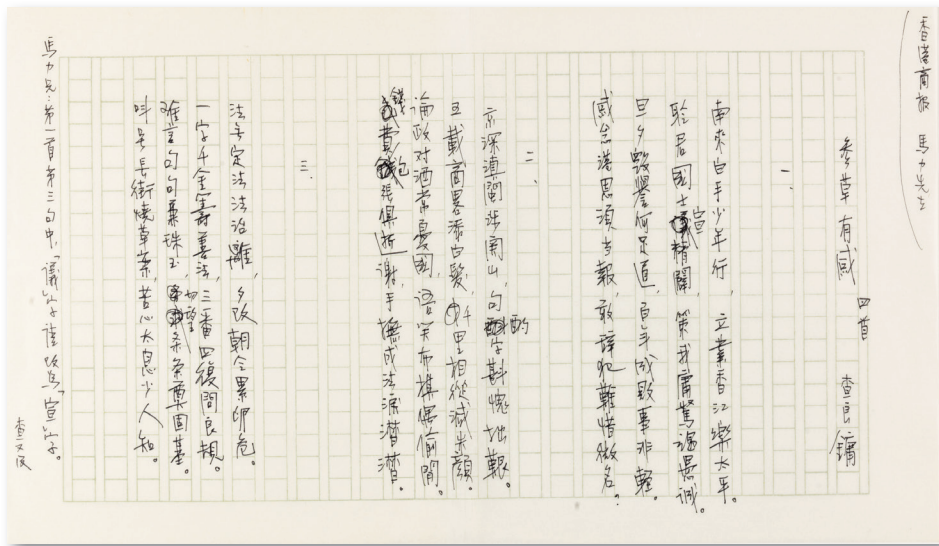 香港商報 馬力先生
參草有感 四首 查良鏞
一、
南來白手少年行，立業香江樂太平。
聆君國士宣精闢，策我庸駑竭愚誠。
旦夕毀譽何足道，百年成敗事非輕。
感念深恩須當報，敢辭犯難惜微名。
二、
京深滇閩涉關山，句酌字斟愧拙艱。
五載商略添白髮，千里相從減朱顏。
論政對酒常憂國，語笑布棋偶偷閒。
錢費包張俱逝謝，手撫成法淚潸潸。
三、
法無定法法治離，夕改朝令累卵危。
一字千金籌善法，三番四復問良規。
難言句句兼珠玉，切望條條奠固基。
叫號長街燒草案，苦心太息少人知。
馬力兄：第一首第三句中，「議」字請改爲「宣」字。
查又及